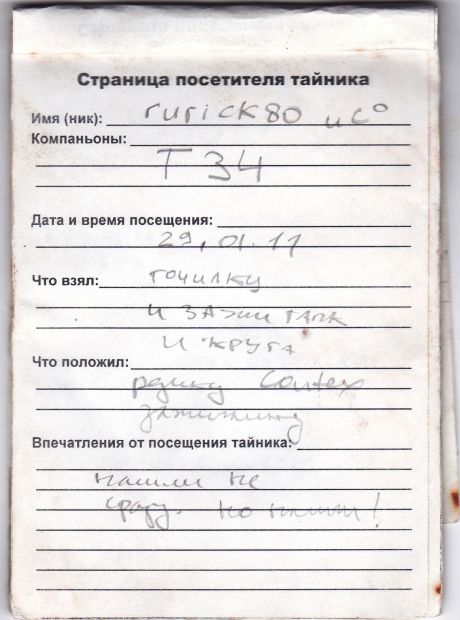 Страница посетителя тайника
Имя (ник): rurick80 и Со
Компаньоны:
Т 34
Дата и время посещения:
29.01.11
Что взял: точилку
и зажигалк
и круга
Что положил:
Contex
Впечатления от посещения тайника:
нашли не
сразу. но нашли!